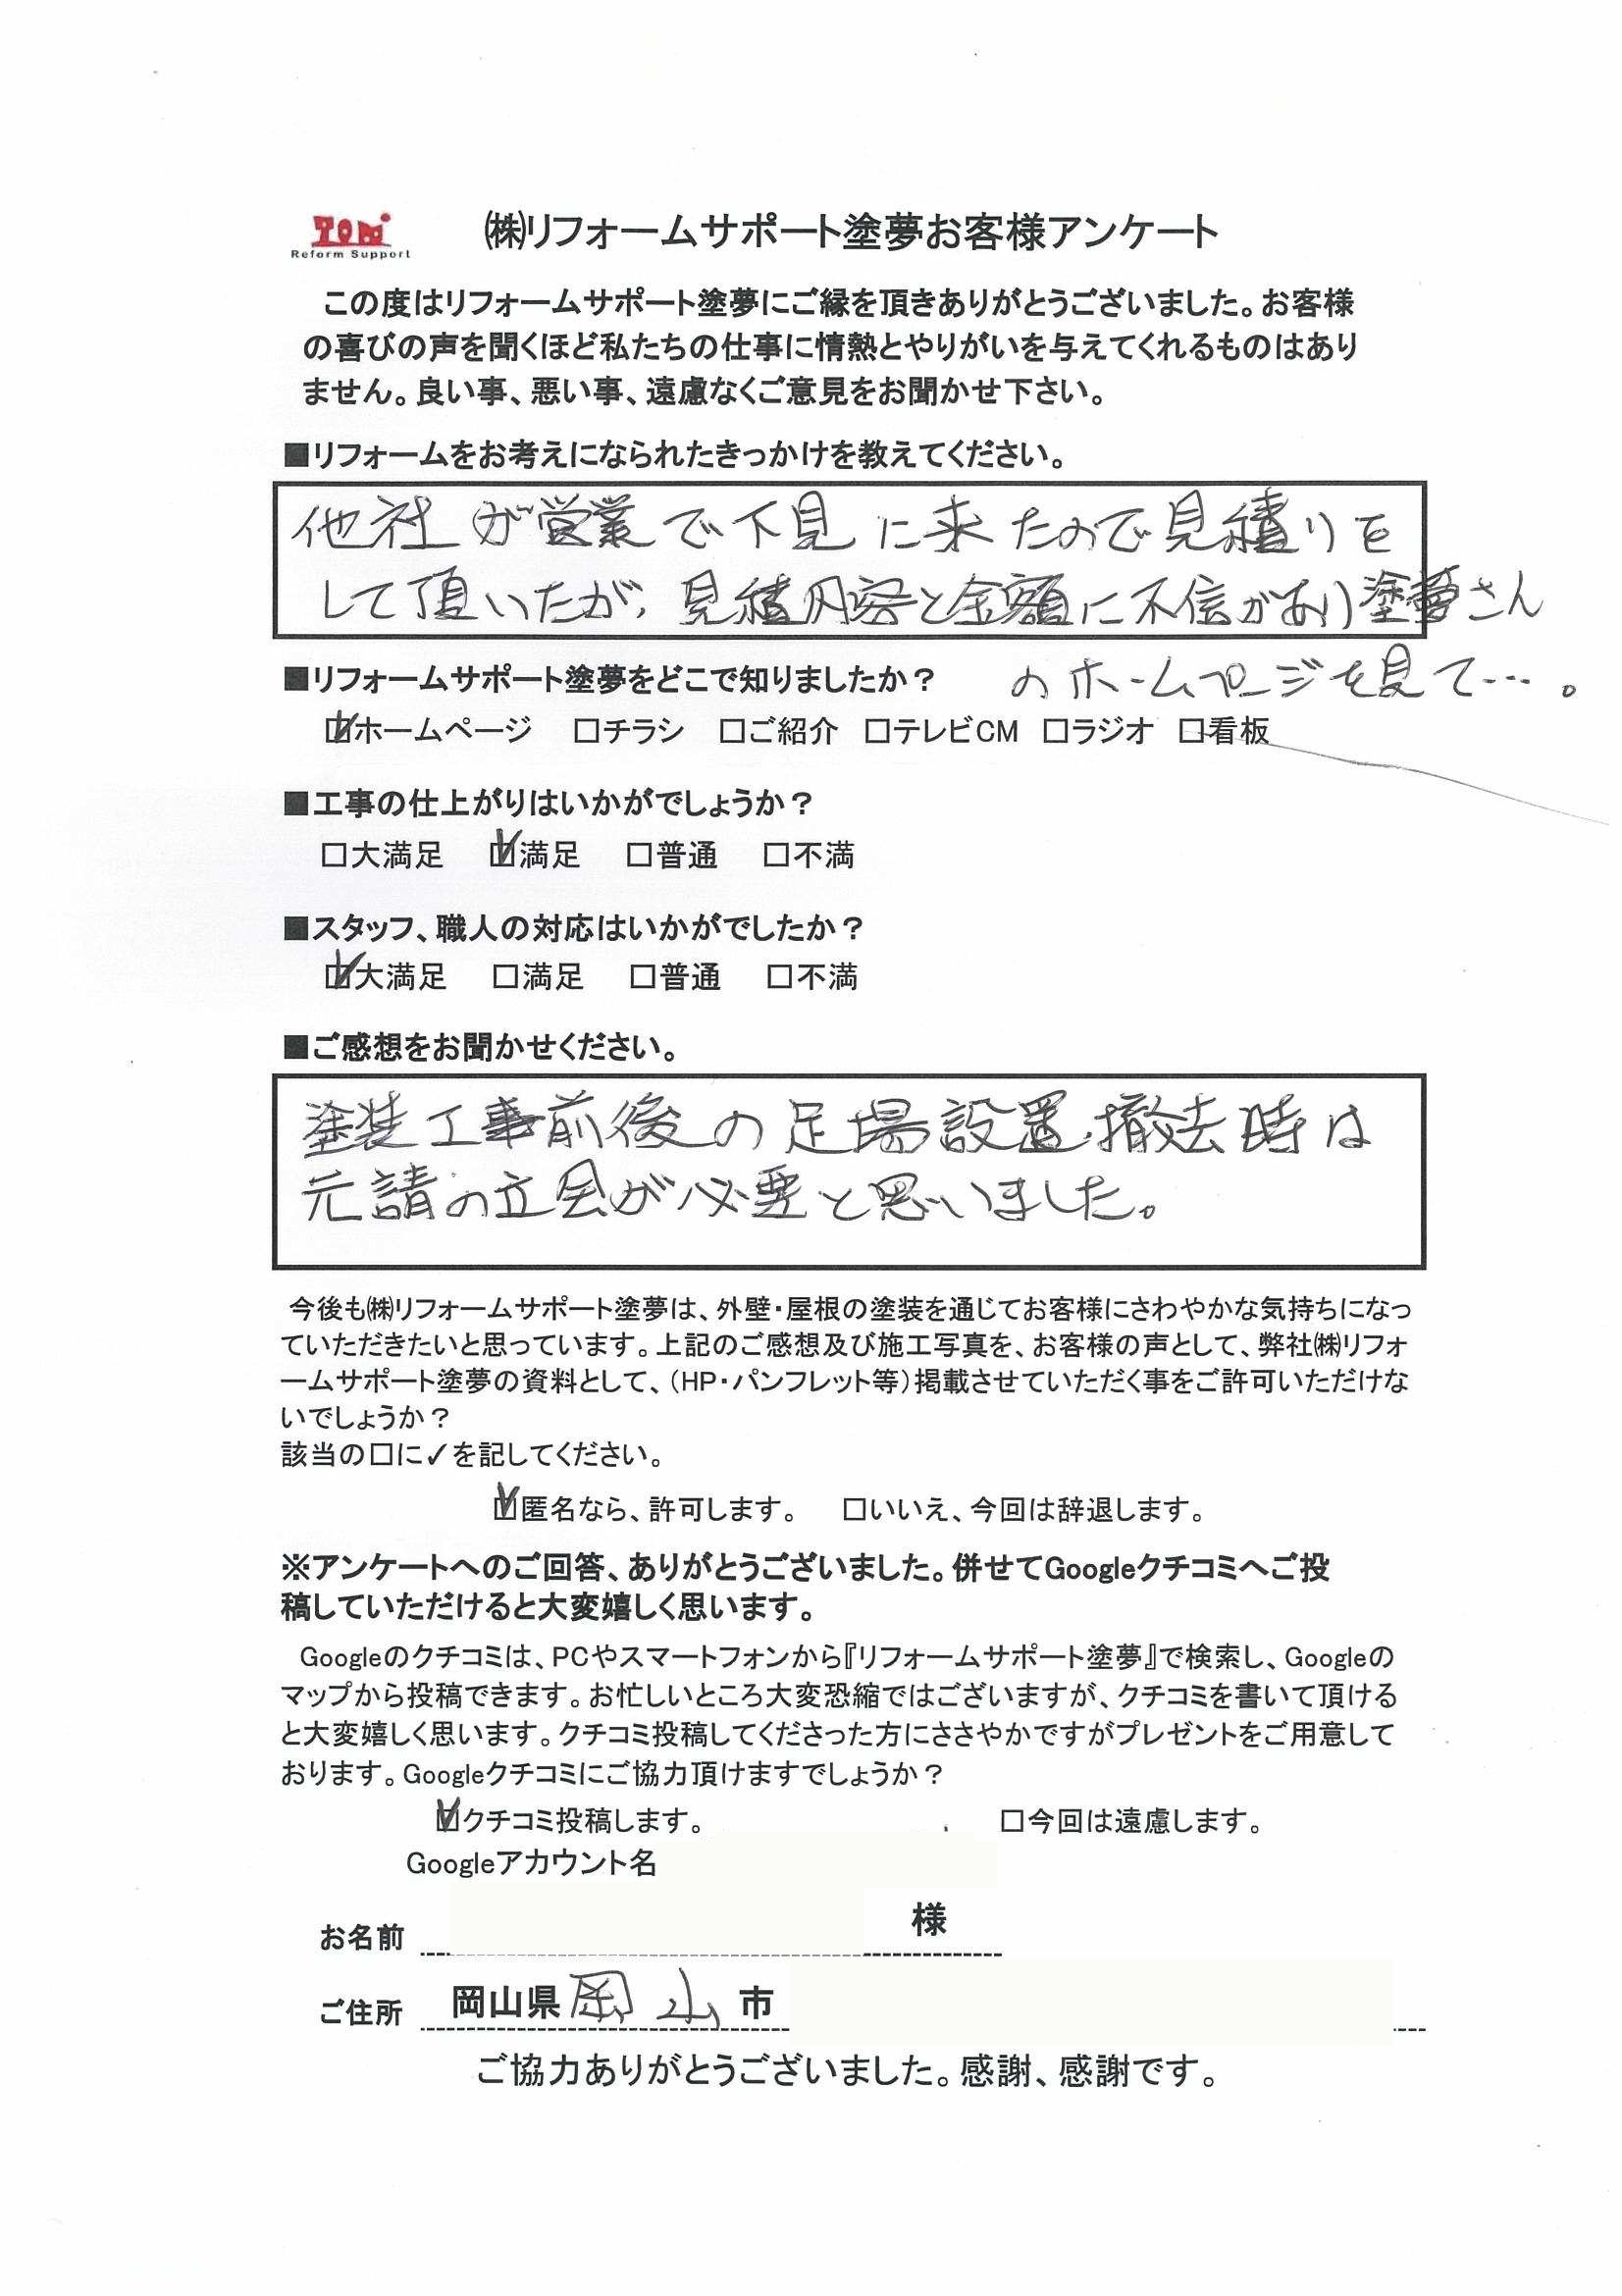 TOM
Reform Support
㈱リフォームサポート塗夢お客様アンケート
この度はリフォームサポート塗夢にご縁を頂きありがとうございました。お客様
の喜びの声を聞くほど私たちの仕事に情熱とやりがいを与えてくれるものはあり
ません。良い事、悪い事、遠慮なくご意見をお聞かせ下さい。
■リフォームをお考えになられたきっかけを教えてください。
他社が営業で下見に来たので見積りを
して頂いたが、見積内容と金額に不信があり塗夢さん
のホームページを見て…。
■リフォームサポート塗夢をどこで知りましたか?
☑ホームページ □チラシ □ご紹介 □テレビCM □ラジオ □看板
■工事の仕上がりはいかがでしょうか?
□大満足 ☑満足 □普通 □不満
■スタッフ、職人の対応はいかがでしたか?
☑大満足 □満足 □普通 □不満
■ご感想をお聞かせください。
塗装工事前後の足場設置、撤去時は
元請の立会が必要と思いました。
今後も㈱リフォームサポート塗夢は、外壁・屋根の塗装を通じてお客様にさわやかな気持ちになっ
ていただきたいと思っています。上記のご感想及び施工写真を、お客様の声として、弊社㈱リフォ
ームサポート塗夢の資料として、(HP・パンフレット等)掲載させていただく事をご許可いただけな
いでしょうか?
該当の□に✓を記してください。
☑匿名なら、許可します。 □いいえ、今回は辞退します。
※アンケートへのご回答、ありがとうございました。併せてGoogleクチコミへご投
稿していただけると大変嬉しく思います。
Googleのクチコミは、PCやスマートフォンから『リフォームサポート塗夢』で検索し、Googleの
マップから投稿できます。お忙しいところ大変恐縮ではございますが、クチコミを書いて頂ける
と大変嬉しく思います。クチコミ投稿してくださった方にささやかですがプレゼントをご用意して
おります。Googleクチコミにご協力頂けますでしょうか?
☑クチコミ投稿します。 □今回は遠慮します。
Googleアカウント名
お名前 様
ご住所 岡山県岡山市
ご協力ありがとうございました。感謝、感謝です。